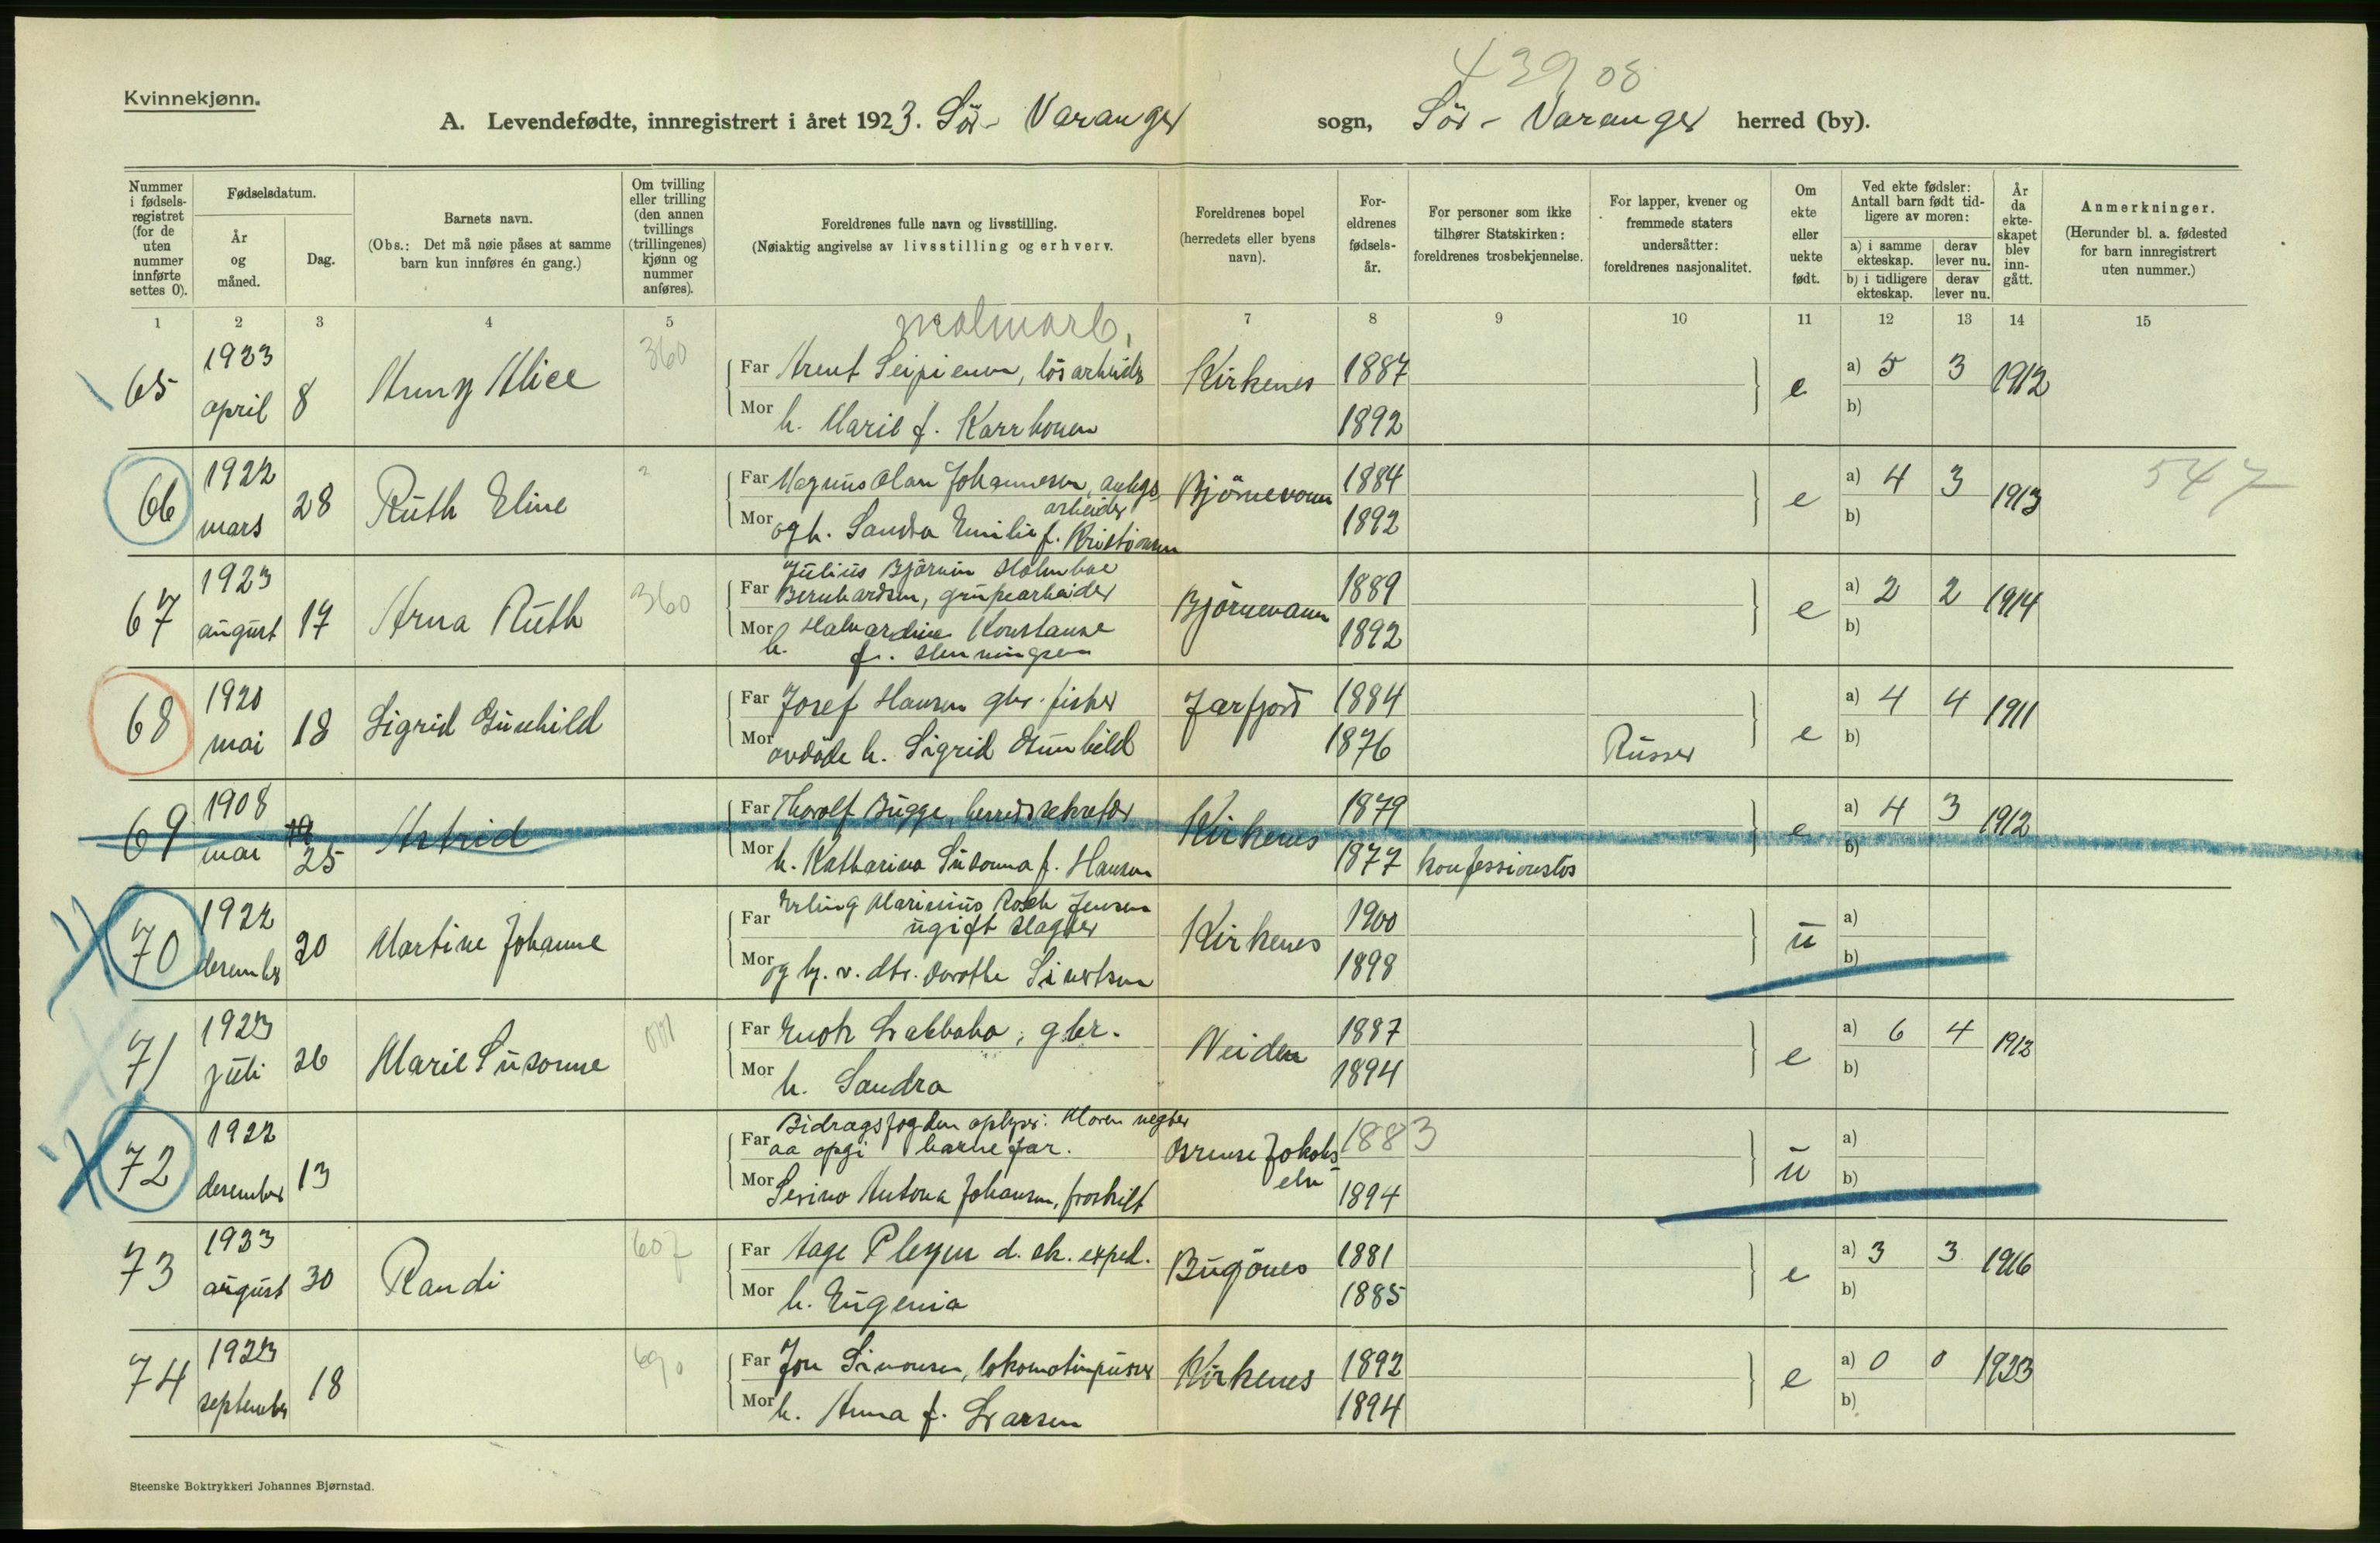 43908
Kvinnekjønn.
A. Levendefødte, innregistrert i året 1923. Sör-Varanger sogn, Sör-Varanger herred (by).
Nummer i fødsels-registret (for de uten nummer innførte settes 0).
Fødselsdatum.
År og måned.
Dag.
Barnets navn.
(Obs.: Det må nøie påses at samme barn kun innføres én gang.)
Om tvilling eller trilling (den annen tvillings (trillingenes) kjønn og nummer anføres).
Foreldrenes fulle navn og livsstilling.
(Nøiaktig angivelse av livsstilling og erhverv.
Foreldrenes bopel (herredets eller byens navn).
For-eldrenes fødsels-år.
For personer som ikke tilhører Statskirken: foreldrenes trosbekjennelse.
For lapper, kvener og fremmede staters undersåtter: foreldrenes nasjonalitet.
Om ekte eller uekte født.
Ved ekte fødsler: Antall barn født tid-ligere av moren:
a) i samme ekteskap.
derav lever nu.
b) i tidligere ekteskap.
derav lever nu.
År da ekte-skapet blev inn-gått.
Anmerkninger.
(Herunder bl. a. fødested for barn innregistrert uten nummer.)
1 2 3 4 5 7 8 9 10 11 12 13 14 15
malmarb.
65 1923 april 8 Anny Alice 360
Far Arent, lösarbeider Kirkenes 1887 e a) 5 3 1912
Mor h. Marie f. Karrhonen 1892 b)
66 1922 mars 28 Ruth Eline
Far Magnus Olav Johannesen, anlegs arbeider Björnevann 1884 e a) 4 3 1913 547
Mor og h. Sandra Emilie f. Kristiansen 1892 b)
67 1923 august 17 Arna Ruth 360
Julius Björnin Holmboe
Far Bernhardsen, grupearbeider Björnevann 1889 e a) 2 2 1914
Mor h. Halvardine Konstanse 1892 b)
f. Henningsen
68 1920 mai 18 Sigrid Gunhild
Far Josef Hansen gbr. fisker Jarfjord 1884 e a) 4 4 1911
Mor avdöde h. Sigrid Gunhild 1876 Russer b)
69 1908 mai 25 Astrid
Far Thorolf Bugge, herredssekretær Kirkenes 1879 e a) 4 3 1912
Mor h. Katharina Susanna f. Hansen 1877 konfessionslös b)
70 1922 desember 20 Martine Johanne
Erling Marinius Rosch Jensen
Far ugift slagter Kirkenes 1900 u a)
Mor og h. v. dtr. Dorothe Sivertsen 1898 b)
71 1923 juli 26 Marie Susanne
Far Enok Labbaho, gbr. Neiden 1887 e a) 6 4 1912
Mor h. Sandra 1894 b)
72 1922 desember 13
Bidragsfogden oplyser: Moren negter
Far aa opgi barnefar. Grense Jakobs elv 1883 u a)
Mor Serina Antona Johansen, fraskilt 1894 b)
73 1923 august 30 Randi 607
Far Aage Pleym d. sk. exped. Bugönes 1881 e a) 3 3 1916
Mor h. Eugenia 1885 b)
74 1923 september 18 690
Far Jon Simonsen, lokomotivpusser Kirkenes 1892 e a) 0 0 1923
Mor h. Anna f. Larsen 1894 b)
Steenske Boktrykkeri Johannes Bjørnstad.